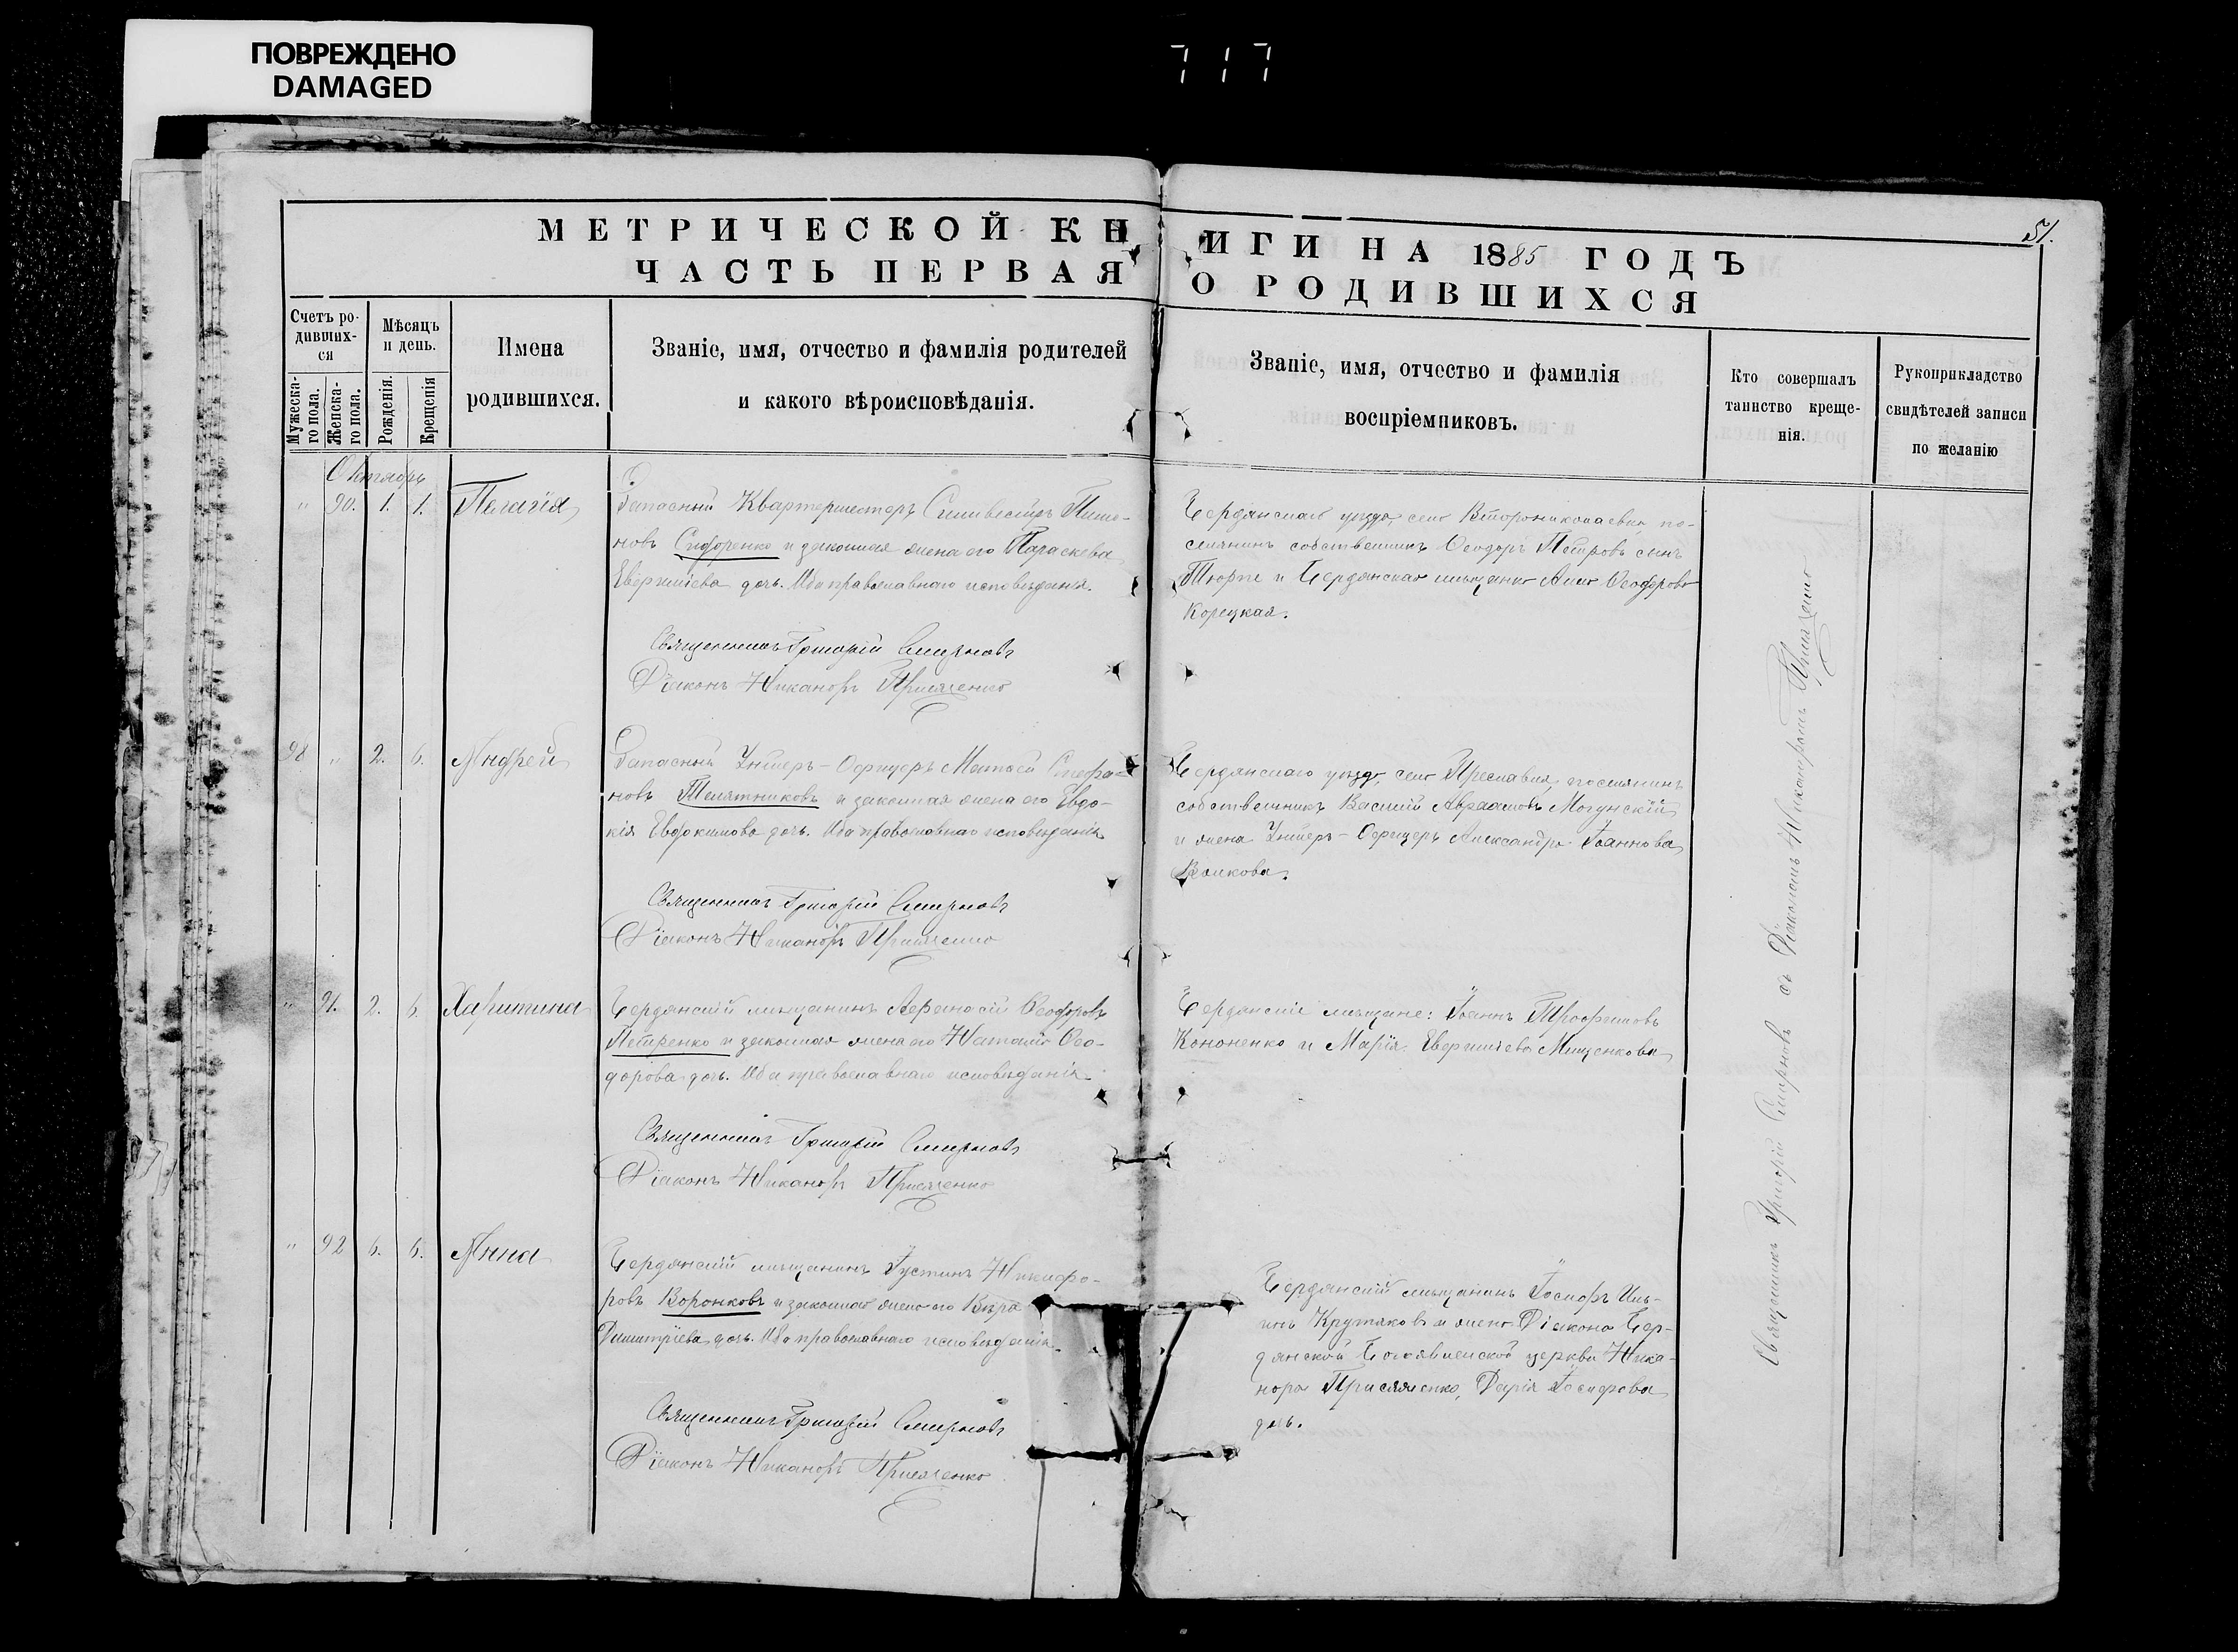 ПОВРЕЖДЕНО
DAMAGED
717
51.
МЕТРИЧЕСКОЙ КНИГИ НА 1885 ГОДЪ
ЧАСТЬ ПЕРВАЯ О РОДИВШИХСЯ
Счетъ ро-
дивших-
ся
Мужеска-
го пола.
Женска-
го пола.
Мѣсяцъ
и день.
Рожденія.
Крещенія
Имена
родившихся.
Званіе, имя, отчество и фамилія родителей
и какого вѣроисповѣданія.
Званіе, имя, отчество и фамилія
воспріемниковъ.
Кто совершалъ
таинство креще-
нія.
Рукоприкладство
свидѣтелей записи
по желанію
Октябрь
" 90. 1. 1. Пелагія
Запасный Квартермистеръ Сильвестръ
новъ Сидоренко и законная жена его Параскева
дочь. Оба православнаго исповѣданія.
Священникъ Григорій Смирновъ
Діаконъ Никаноръ Присяженко
Бердянскаго уѣзда, села Второниколаевки по-
селянинъ собственникъ Ѳеодоръ Петровъ сынъ
и Бердянская мѣщанка Анна Ѳеодорова
Корецкая.
98 " 2. 6. Андрей
Запасный Унтеръ-Офицеръ Матѳей Стефа-
новъ Телятниковъ и законная жена его Евдо-
кія Евфимова дочь. Оба православнаго исповѣданія
Священникъ Григорій Смирновъ
Діаконъ Никаноръ Присяженко
Бердянскаго уѣзда, села Преслава, поселянинъ
собственникъ Василій Авраамовъ Могунскій
и жена Унтеръ-Офицера Александра Іоаннова
Волкова.
" 91. 2. 6. Харитина
Бердянскій мѣщанинъ Аѳанасій Ѳеодоровъ
Петренко и законная жена его Наталія Ѳео-
дорова дочь. Оба православнаго исповѣданія
Священникъ Григорій Смирновъ
Діаконъ Никаноръ Присяженко
Бердянскіе мѣщане: Іоаннъ Трофимовъ
Кононенко и Марія Мищенкова
" 92 6. 6. Анна
Бердянскій мѣщанинъ Іустинъ Никифо-
ровъ Воронковъ и законная жена его Вѣра
Димитріева дочь. Оба православнаго исповѣданія.
Священникъ Григорій Смирновъ
Діаконъ Никаноръ Присяженко
Бердянскій мѣщанинъ Іосифъ Иль-
инъ Крутяковъ и жена Діакона Бер-
дянской Богоявленской церкви Ника-
нора Присяженко, Дарія Іосифова
дочь.
Священникъ Григорій Смирновъ съ Діакономъ Никаноромъ Присяженко